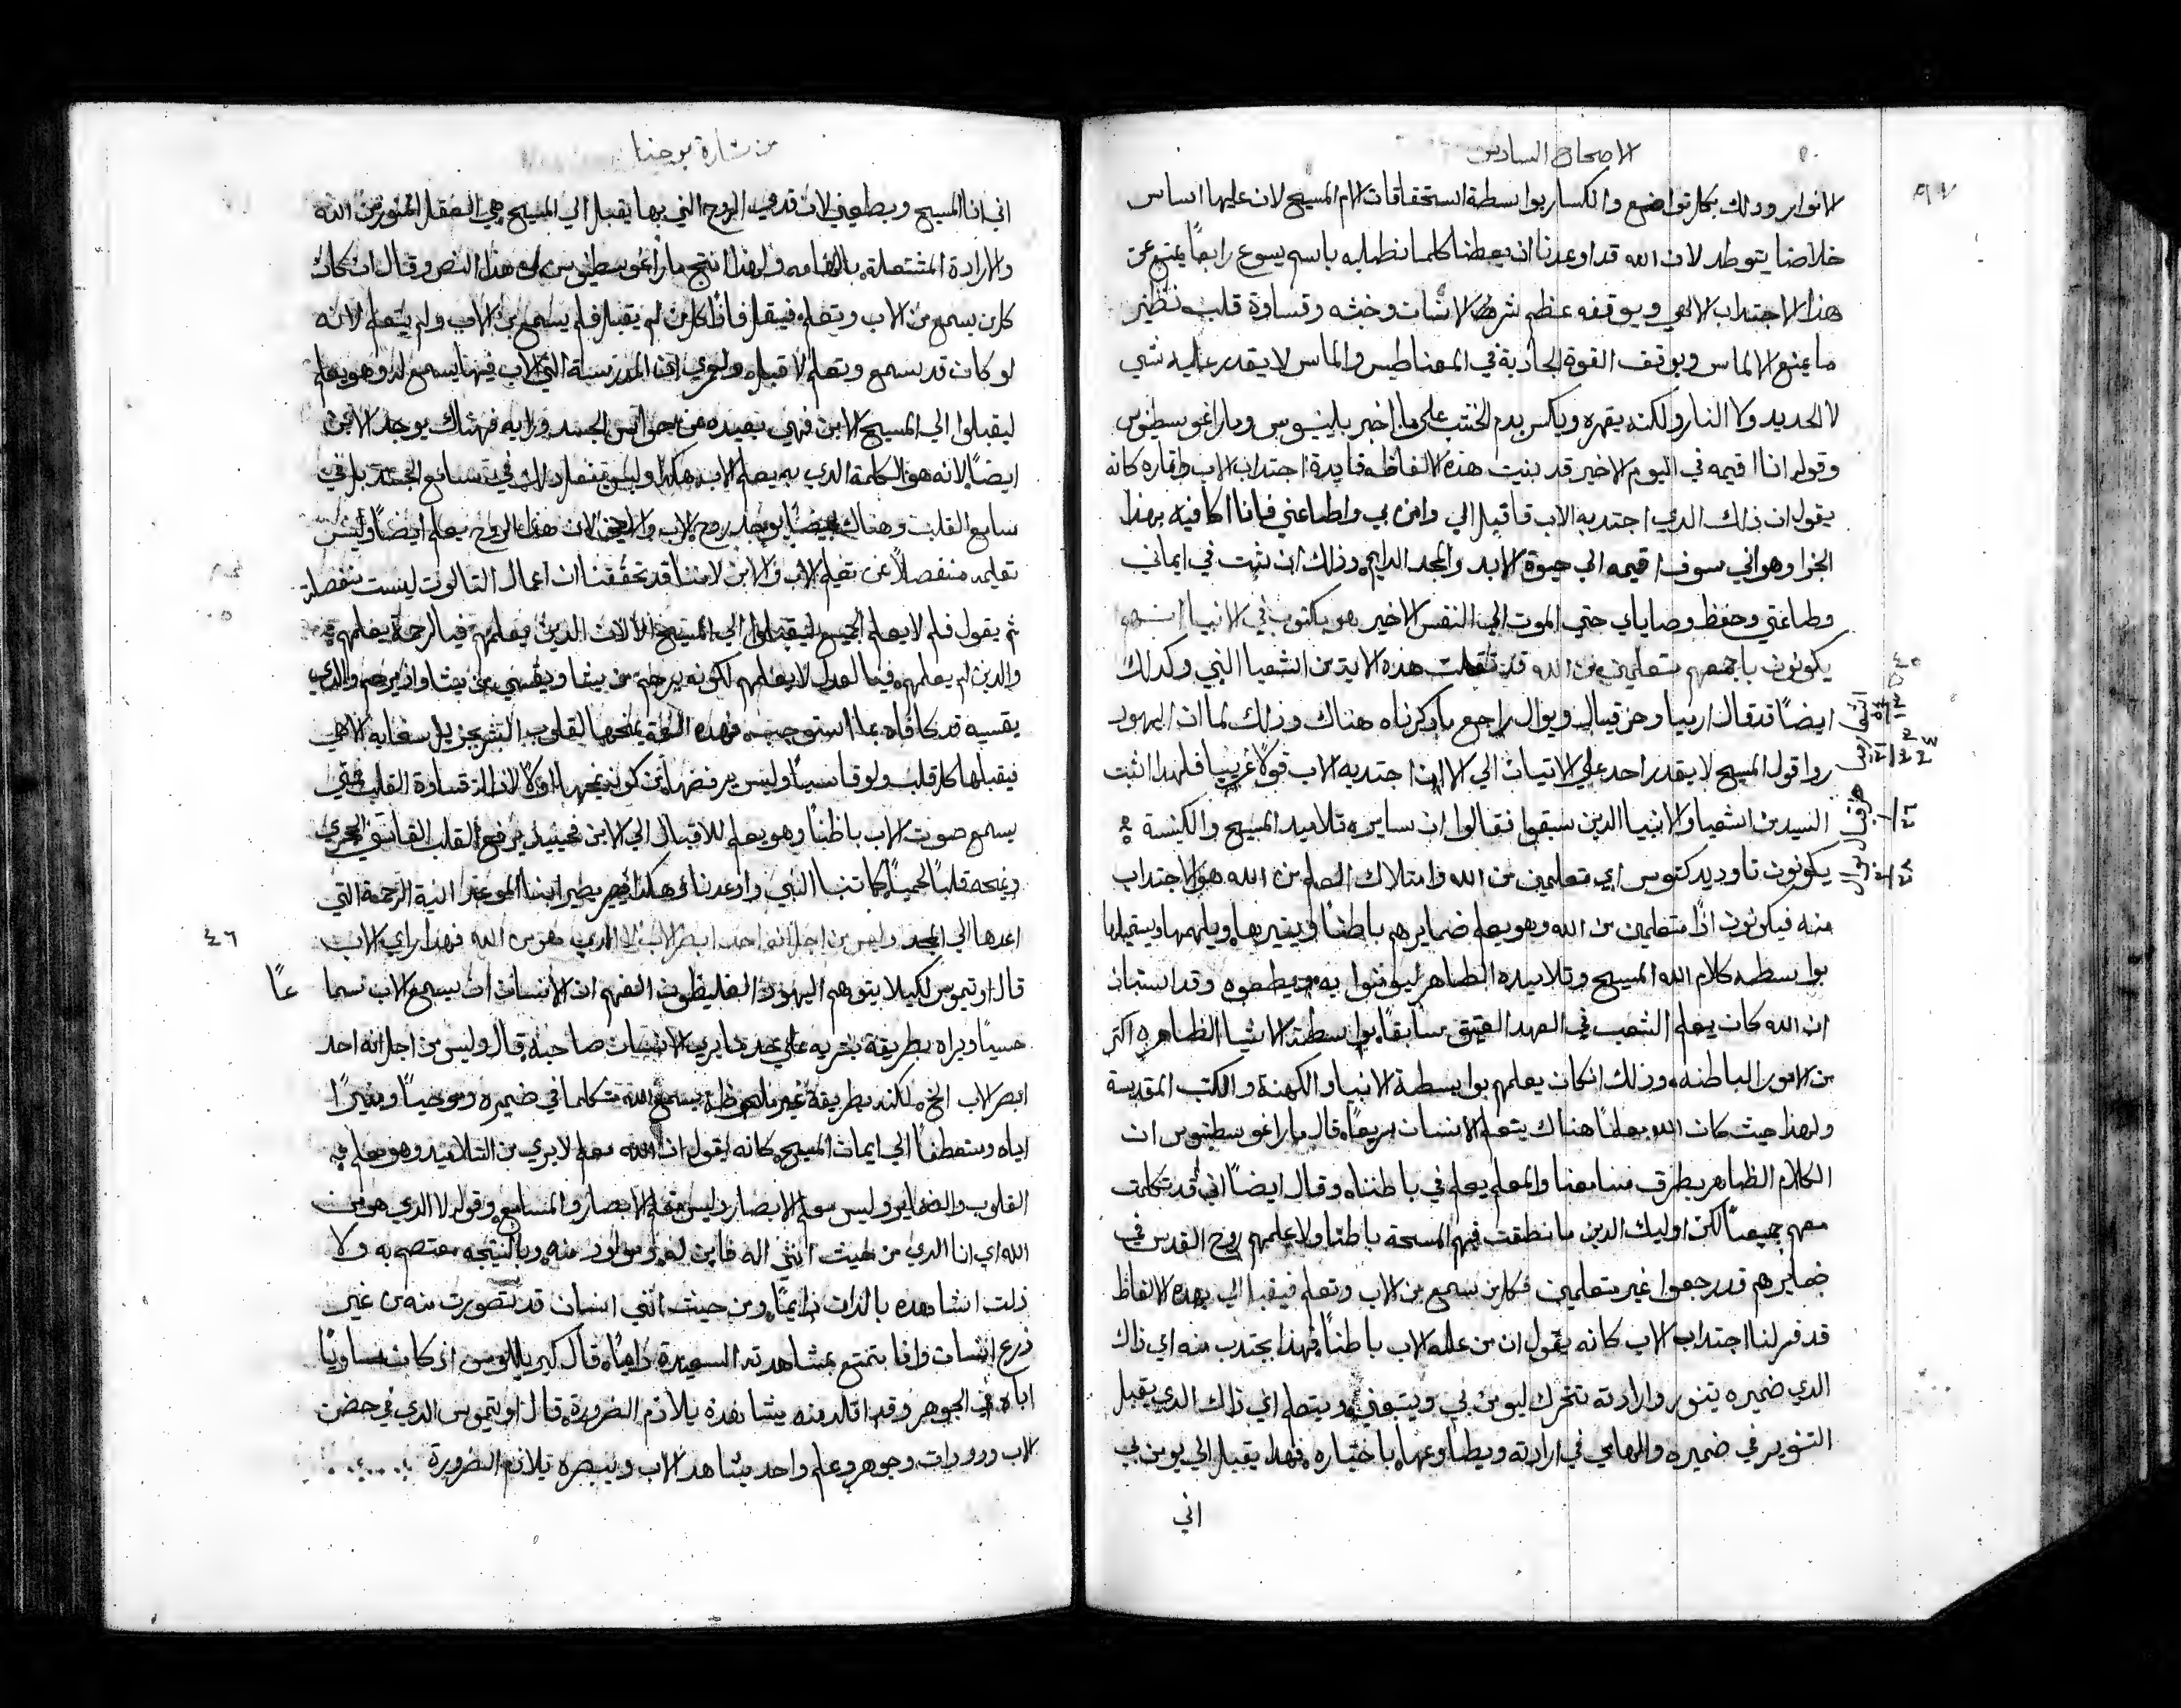 الاصحاح السادس
الانوار وذلك بكل تواضع وانكسار بواسطة استحقاقات الام المسيح لان عليها اساس
خلاصنا يتوطد لان الله قد اوعدنا ان يعطينا كلما نطلبه باسم يسوع رابعاً يمنع عن
هذا الاجتداب الالهي ويوقفه عظم شر الانسان وخبثه وقساوة قلبه نظير
ما يمنع الالماس ويوقف القوة الجادبة في المغناطيس والماس لا يقدر عليه شي
لا الحديد ولا النار ولكنه يقهره ويكسر بدم على ما اخبر بلينيوس وماراغوسطينوس
وقوله انا اقيمه في اليوم الاخير قد بنيت هذه الالفاظ فايدة اجتداب الاب واتماره كانه
يقول ان ذلك الدي اجتدبه الاب فاقبل الي وامن بي واطاعني فانا اكافيه بهذا
الجزا وهو اني سوف اقيمه الي حيوة الابد والمجد الدايم وذلك ان ثبت في ايماني
وطاعتي وحفظ وصاياي حتي الموت الي النفس الاخير هو مكتوب في الانبيا انهم
٤٥
يكونون باجمعهم متعلمين من الله قد نقلت هذه الاية من اشعيا النبي وكدلك
ايضاً قد قال ارميا وحزقيال ويوال راجع ما دكرناه هناك وذلك لما ان اليهود
راوا قول المسيح لا يقدر احد علي الاتيان الي الا ان اجتدبه الاب قولاً غريبياً فلهدا اثبت
السيد من اشعيا والانبيا الدين سبقوا فقالوا ان ساير تلاميد المسيح والكنيسة
يكونون تاوديدكتوس اي متعلمين من الله وامتلاك العلم من الله هو الاجتداب
منه فيكونون اداً متعلمين من الله وهو يعلم ضمايرهم باطناً وينيرها ويلهمها ويستميلها
بواسطة كلام الله المسيح وتلاميده الظاهر ليومنوا به ويطيعوه وقد استبان
ان الله كان يعلم الشعب في العهد العتيق سابقاً بواسطة الاشيا الظاهره اكتر
من الامور الباطنه وذلك انه كان يعلمهم بواسطة الانبيا والكهنة والكتب المقدسة
ولهذا حيث كان الله معلماً هناك يتعلم الانسان سريعاً قال ماراغوسطينوس ان
الكلام الظاهر يطرق مسامعنا والمعلم يعلم في باطننا وقال ايضاً اني قد تكلمت
معهم جميعاً لكن اوليك الدين ما نطقت فيهم المسحة باطناً ولا علمهم روح القدس في
ضمايرهم قد رجعوا غير متعلمين فكل من سمع من الاب وتعلم فيقبل الي بهذه الالفاظ
قد فسر لنا اجتداب الاب كانه يقول ان من علمه الاب باطناً فهدا يجتدب منه اي ذاك
الدي ضميره يتنور وارادته تتحرك ليومن بي ويتبعني ويتعلم اي ذاك الدي يقبل
التنوير في ضميره والهامي في ارادته ويطاوعها باختياره فهدا يقبل الي يومن بي
اني
من بشارة يوحنا
اني انا المسيح ويطيعني لان قدمي الروح التي بها يقبل الي المسيح هي العقل المنور من الله
والارادة المشتعلة بالهامه ولهذا انتج ماراغوسطينوس من هذا النص وقال ان كان
كل من يسمع من الاب وتعلم فيقبل فاذاً كل من لم يقبل فلم يسمع من الاب ولم يتعلم لانه
لو كان قد سمع وتعلم لاقبل ولعمري ان المدرسة التي الاب فيها يسمع له وهو يعلم
ليقبلوا الي المسيح الابن فهي بعيده من حواس الجسد ورايه فهناك يوجد الابن
ايضاً لانه هو الكلمة الدي به يعلم الاب هكدا وليس يفعل دلك في مسامع الجسد بل في
سامع القلب وهناك ايضاً يوجد روح الاب والابن لان هدا الروح يعلم ايضاً وليس
تعليمه منفصلاً عن تعليم الاب والابن لاننا قد تحققنا ان اعمال التالوت ليست منفصلة
ثم يقول فلم لا يعلم الجميع ليقبلوا الي المسيح الا لان الدين يعلمهم فبالرحمة يعلمهم
والدين لم يعلمهم فبالعدل لا يعلمهم لكونه يرحم من يشا ويقسي من يشا واذ يرحم والدي
يقسيه قد كافاه بما استوجبه فهده النعمة يمنحها لقلوب البشر بجزيل سخايه الالهي
فيقبلها كل قلب ولو قاسياً وليس يرفضها من كونه يمنحها اولاً لازالة قساوة القلب فمتي
يسمع صوت الاب باطناً وهو يعلم للاقبال الي الابن فحينيد يرفع القلب القاسي الحجري
ويمنحه قلباً لحمياً كما تنبا النبي واوعدنا وهكدا يصير ابنا الموعد انية الرحمة التي
٤٦
اعدها الي المجد وليس من اجل انه احد ابصر الاب الا الدي هو من الله فهذا راي الاب
قال اوتيميوس لكيلا يتوهم اليهود الغليظون الفهم ان الانسان ان يسمع الاب سماعاً
حسياً ويراه بطريقة بشريه علي حد ما يري الانسان صاحبه قال وليس من اجل انه احد
ابصر الاب الخ لكنه بطريقة غير ملحوظة يسمع الله متكلماً في ضميره وموحياً ومنيراً
اياه ومستعطفاً الي ايمان المسيح كانه يقول ان الله معلم لا يري من التلاميد وهو معلم
القلوب والضماير وليس معلم الابصار وليس معلم الابصار والمسامع وقوله الا الدي هو من
الله اي انا الدي من حيث انني اله فاني له ومولود منه وبالنتيجه معتصم به ولا
زلت اشاهده بالذات دايماً ومن حيث انني انسان قد تصورت منه من غير
زرع انسان وانا متمتع بمشاهدته السعيدة دايماً قال كيريللوس اذ كان مساوياً
اباه في الجوهر وقد اتلد منه يشاهده بلازم الضرورة قال اوتيميوس الدي في حضن
الاب ودو ذات وجوهر وعلم واحد يشاهد الاب ويبصره بلازم الضرورة